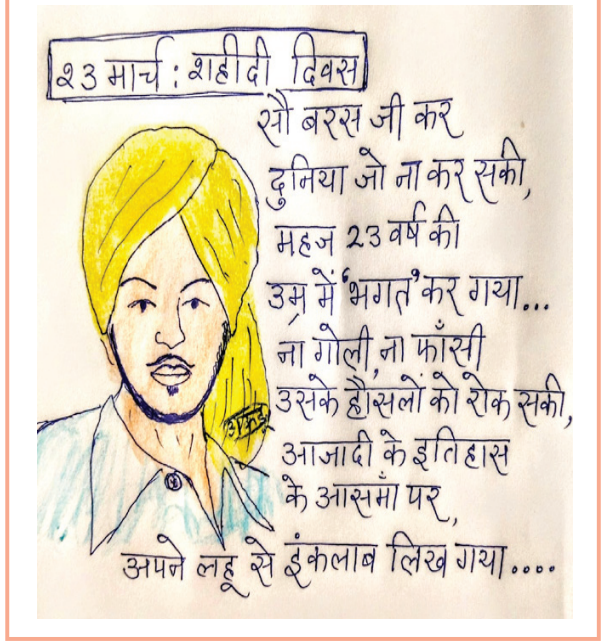 २3 मार्च : शहीदी दिवस
सौ बरस जी कर
दुनिया जो ना कर सकी,
महज २3 वर्ष की
उम्र में 'भगत' कर गया...
ना गोली, ना फाँसी
उसके हौसलों को रोक सकी,
आजादी के इतिहास
के आसमाँ पर,
अपने लहू से इंकलाब लिख गया....